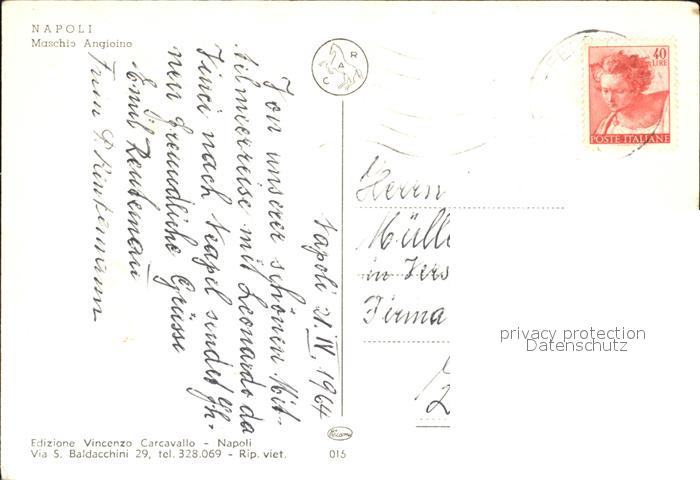 NAPOLI
Maschio Angioino
C A R
40
LIRE
POSTE ITALIANE
Napoli 21. IV. 1964
Von unserer schönen Mit-
telmeerreise mit Leonardo da
Vinci nach Neapel sendet Ih-
nen freundliche Grüsse
Emil
Frau
Herrn
Müll
in Vers
Firma
Z
privacy protection
Datenschutz
Edizione Vincenzo Carcavallo - Napoli
Via S. Baldacchini 29, tel. 328.069 - Rip. viet.
015